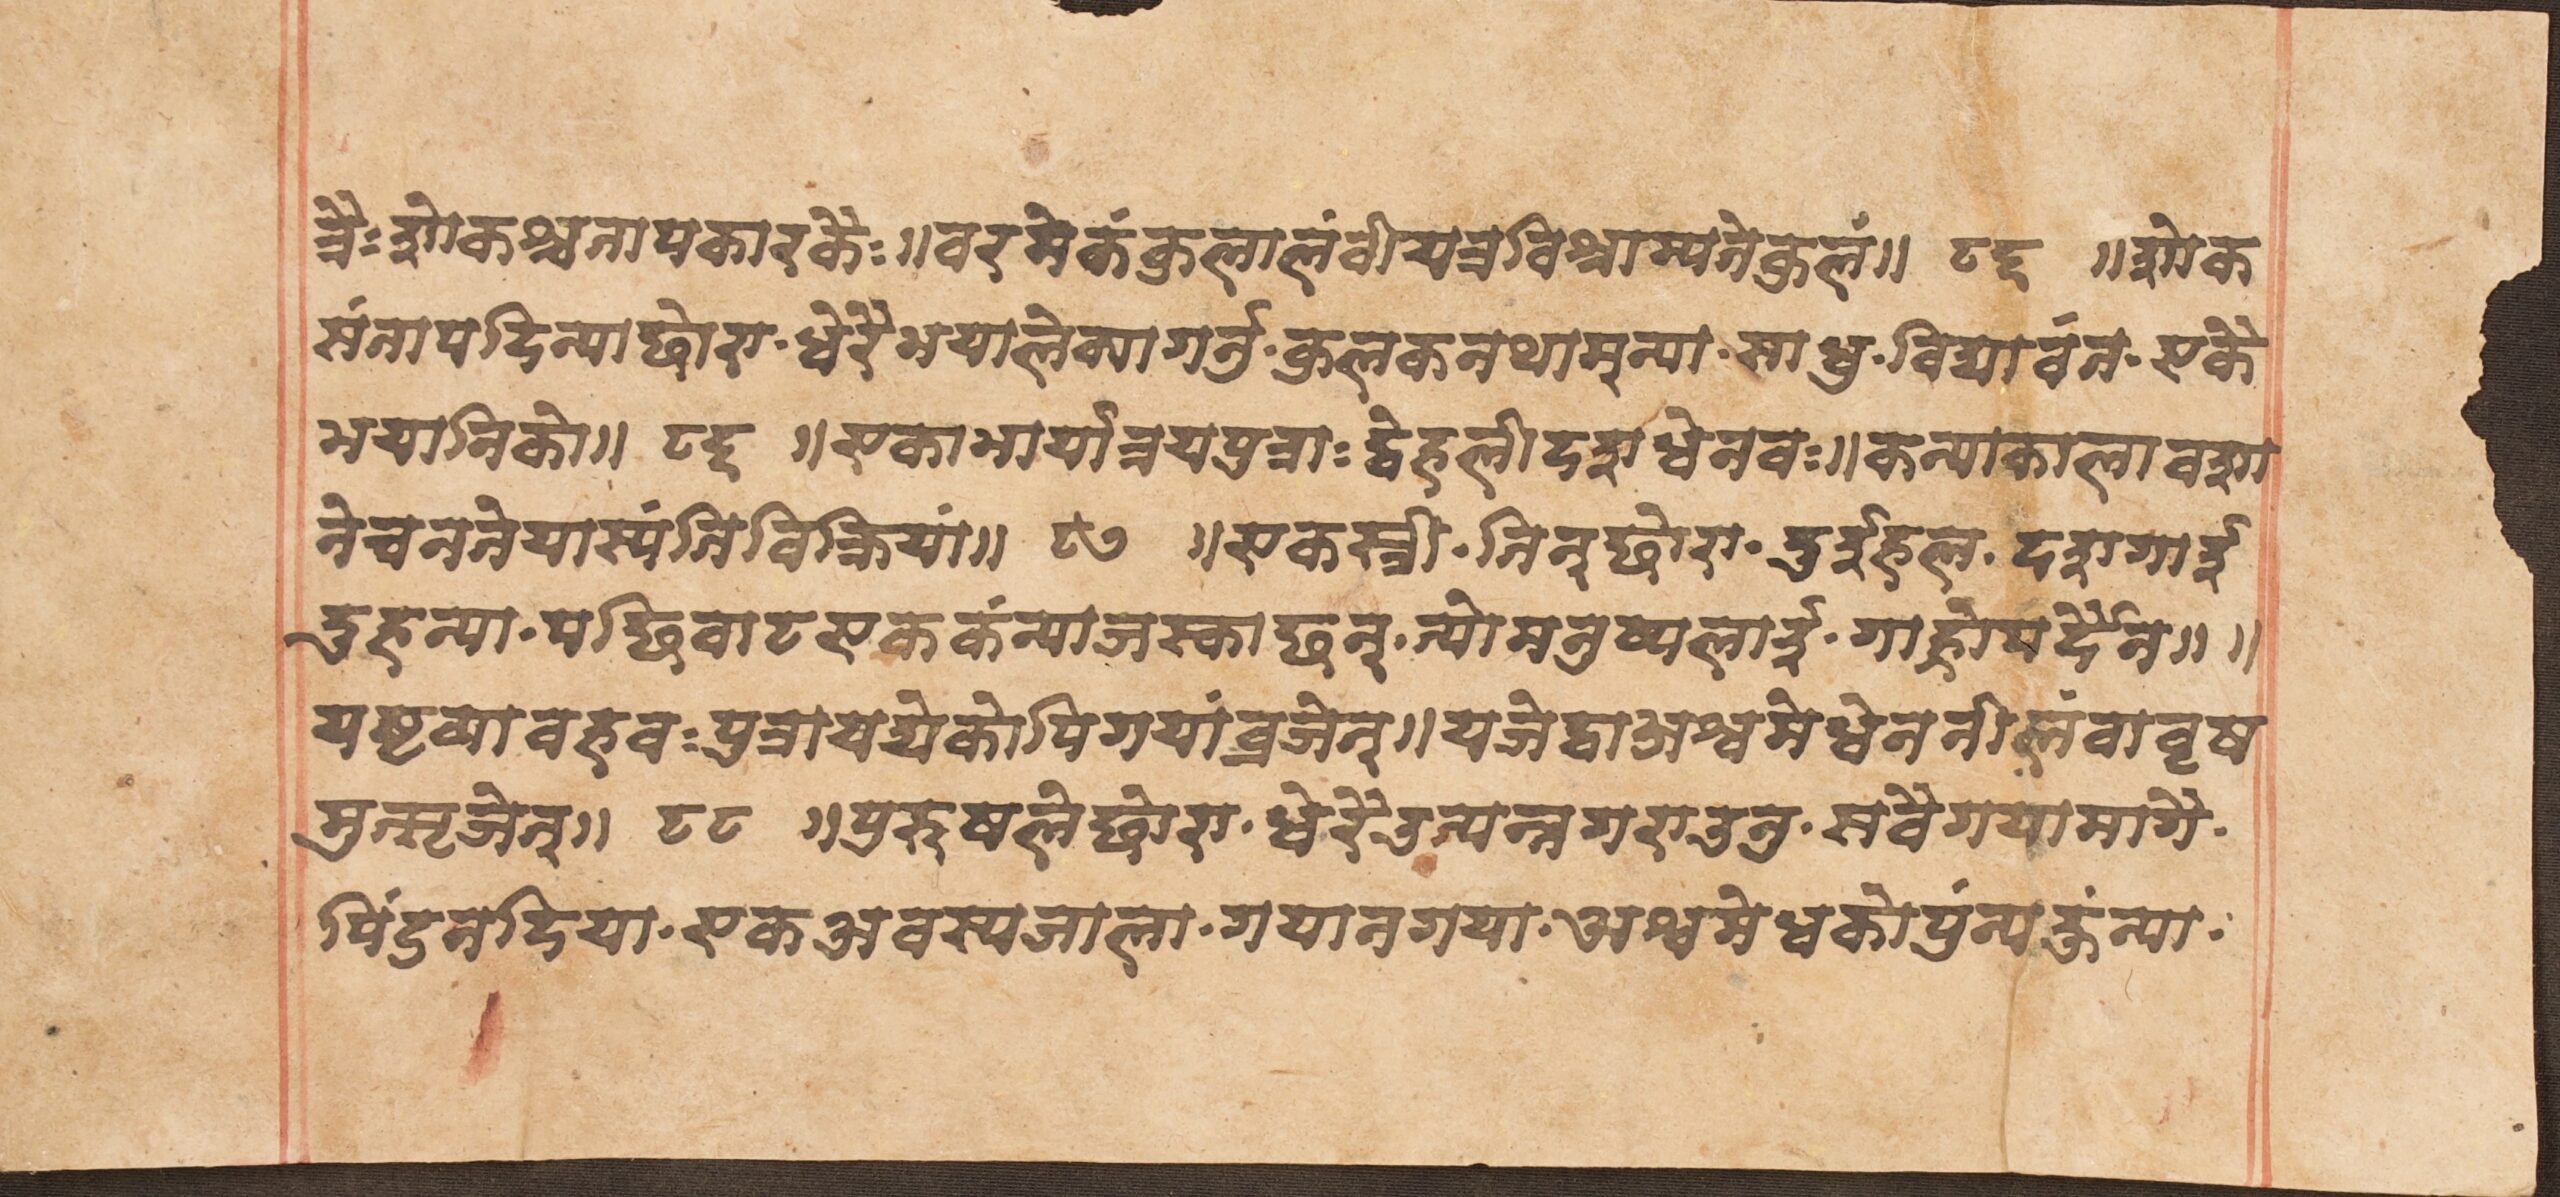 त्रैः शोकश्चतापकारकैः ॥ वरमेकं कुलालंवी यत्रविश्राम्यतेकुलं ॥ ८६ ॥ शोक
संतापदिन्याछोरा · धेरैभयालेक्यागर्नु · कुलकनथाम्न्या · साधु · विद्यावंत · एकै
भयानिको ॥ ८६ ॥ एकाभार्यात्रयपुत्राः द्वेहलीदशधेनवः ॥ कन्याकालावशा
नेचनतेयास्यंतिविक्रियां ॥ ८७ ॥ एकस्त्री · तिन्छोरा · दुईहल · दशगाई
दुहन्या · पछिवाटएककंन्याजस्काछन् · त्योमनुष्यलाई · गाह्रोपर्दैन ॥ ॥
यष्टव्यावहवः पुत्रायद्येकोपिगयांव्रजेत् ॥ यजेद्वाअश्वमेधेननीलंवावृष
मुत्सृजेत् ॥ ८८ ॥ पुरूषलेछोरा · धेरैउत्पन्नगराउनु · सवैगयामागै ·
पिंडनदिया · एकअवस्यजाला · गयानगया · अश्वमेधकोपुंन्यहुंन्या ·